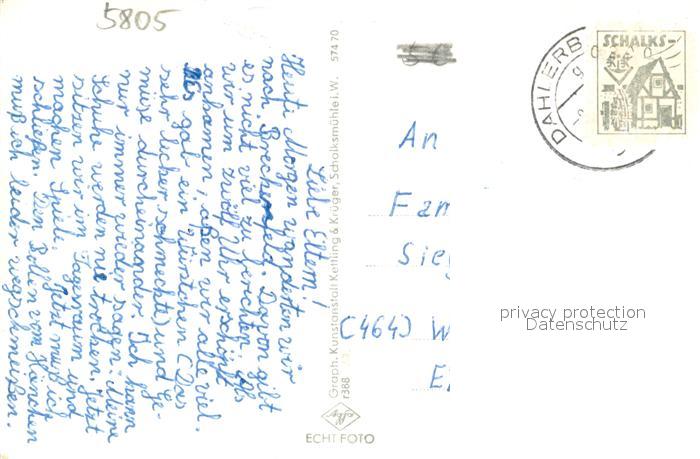 5805
Liebe Eltern!
Heute Morgen wanderten wir
nach Breckerfeld. Davon gibt
es nicht viel zu berichten. Als
wir um zwölf Uhr erschöpft
ankamen, aßen wir alle viel.
Es gab ein Würstchen (Das
sehr lecker schmeckte) und Ge-
müse durcheinander. Ich kann
nur immer wieder sagen: Meine
Schuhe werden nie trocken. Jetzt
sitzen wir im Tagesraum und
machen Spiele. Jetzt muß ich
schließen. Den Bollen vom Hänchen
muß ich leider wegschmeißen.
Graph. Kunstanstalt Kettling & Krüger, Schalksmühle i.W. 574 70
r388
ECHT FOTO
DAHLERB
SCHALKS-
An
Fam
Sieg
(464) W
privacy protection
Datenschutz